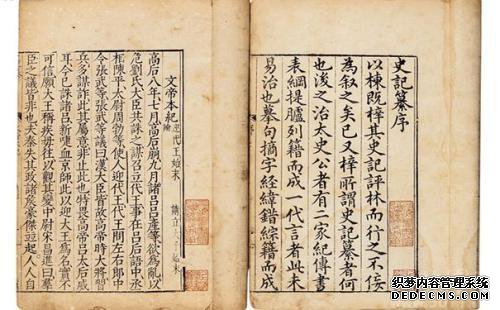 史記纂序
以棟既梓其史記評林而行之不佞
為叙之矣已又梓所謂史記纂者何
也後之治太史公者有二家紀傳書
表綱提臚列籍而成一代言者此未
易治也摹句摘字經緯錯綜籍而成
文帝本紀 迎代王始末
高后八年七月高后崩九月諸呂呂產等欲為亂以
危劉氏大臣共誅之謀召立代王事在呂后語中丞
相陳平太尉周勃等使人迎代王代王問左右郎中
令張武等張武等議曰漢大臣皆故高帝時大將習
兵多謀詐此其屬意非止此也特畏高帝呂太后威
耳今已誅諸呂新啑血京師此以迎大王為名實不
可信願大王稱疾毋往以觀其變中尉宋昌進曰羣
臣之議皆非也夫秦失其政諸矦豪傑並起人人自
电脑学习网